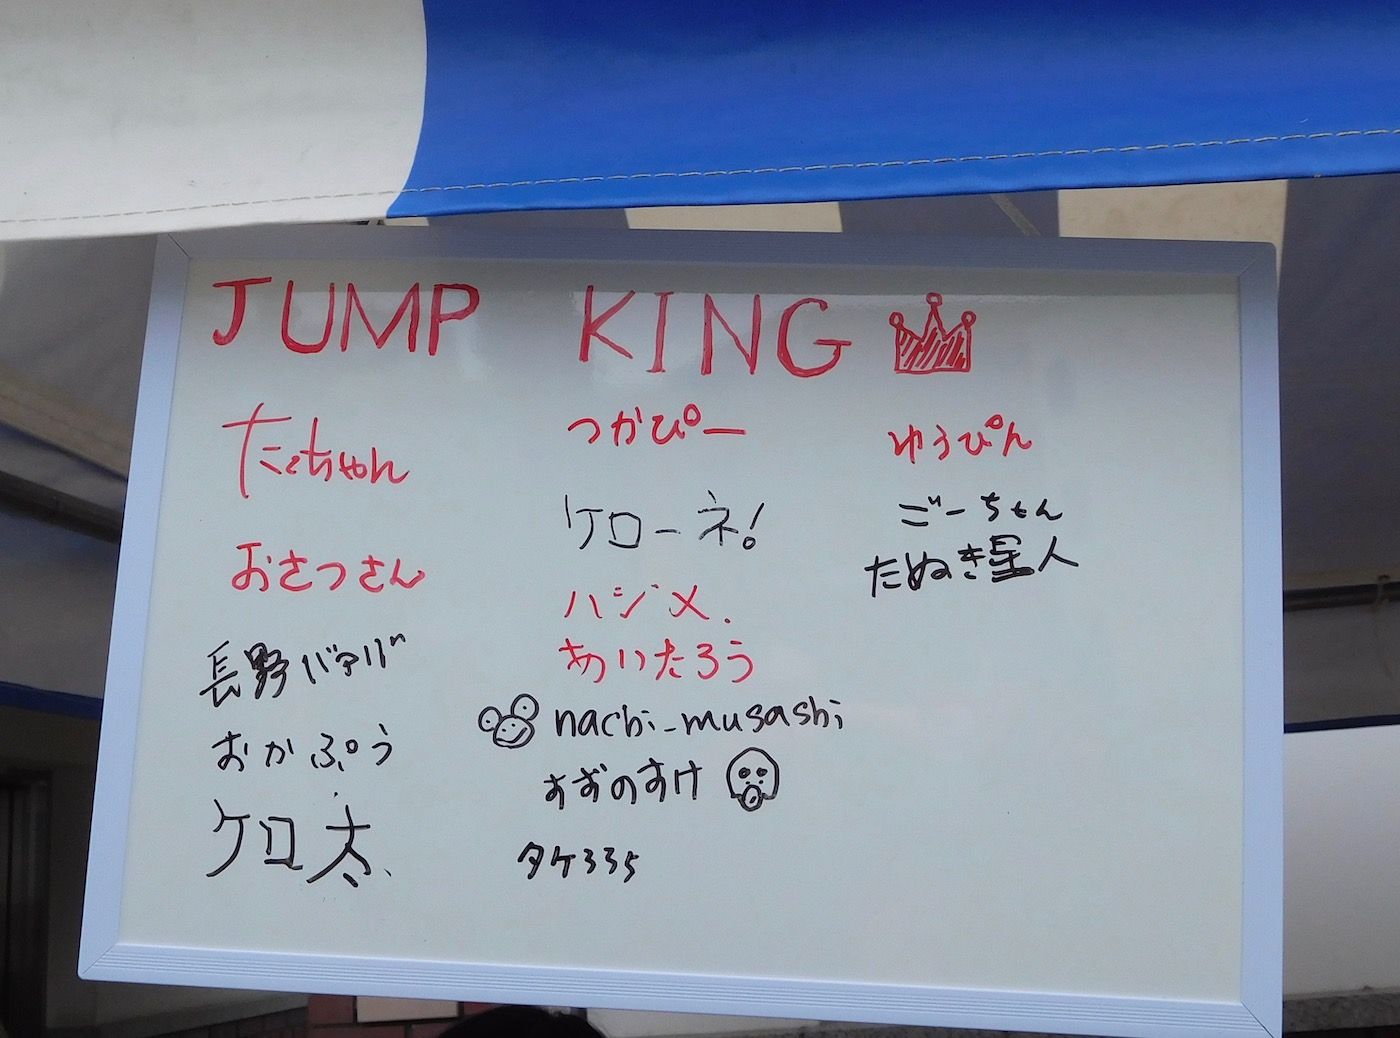 JUMP KING
たくちゃん
おさつさん
長野バアバ
おかぷう
ケロ太
つかぴー
ケローネ!
ハジメ.
あいたろう
nachi_musashi
すずのすけ
タケ335
ゆうぴん
ごーちゃん
たぬき星人